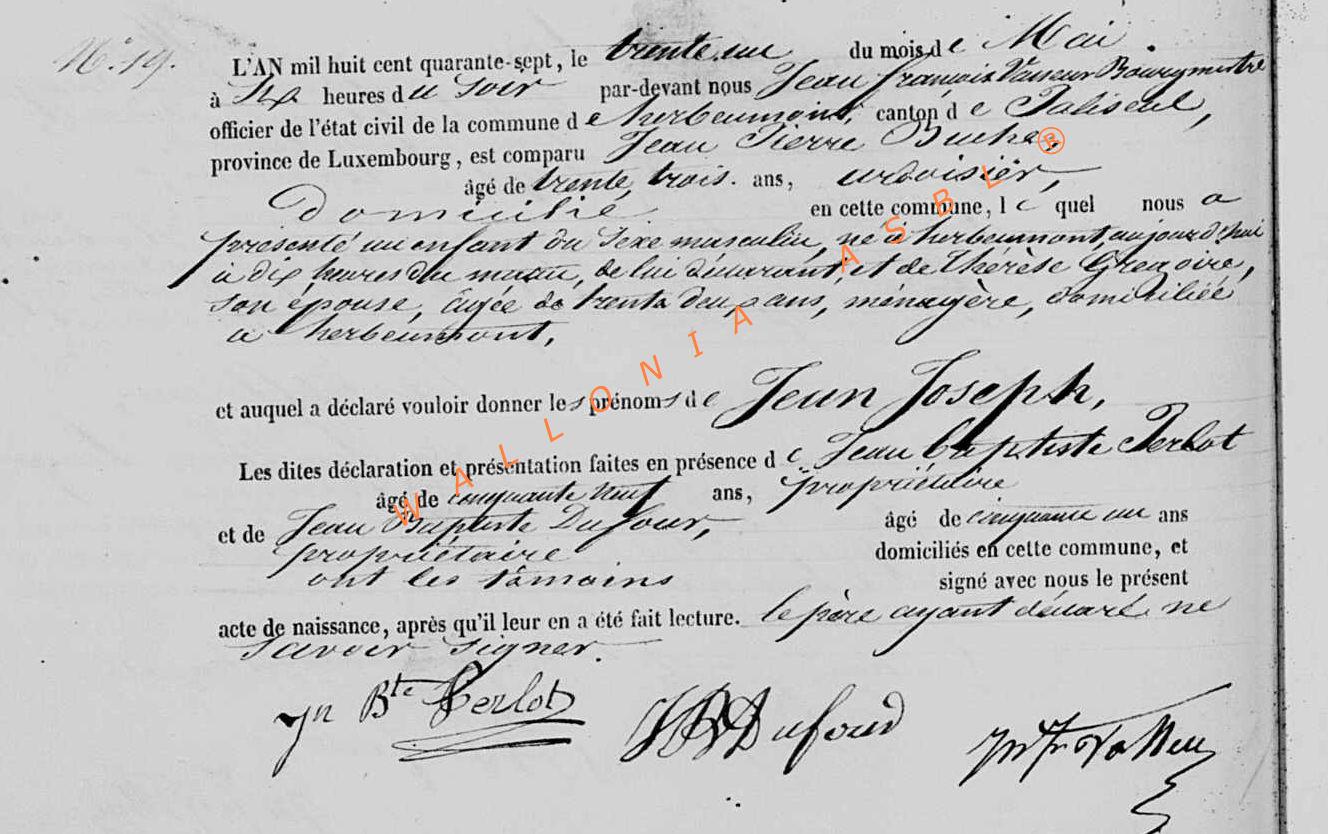 N.° 19.
L'AN mil huit cent quarante-sept, le trente un du mois de Mai.
à Six heures du Soir par-devant nous Jean françois Vasseur Bourgmestre
officier de l'état civil de la commune de herbeumont, canton de Paliseul,
province de Luxembourg, est comparu Jean Pierre Buche,
âgé de trente trois. ans, ardoisièr,
Domicilié en cette commune, lequel nous a
présenté un enfant du Sexe masculin, né à herbeumont, aujourd'hui
à dix heures du matin, de lui déclarant, et de Thérèse Gregoire,
son épouse, âgée de trente deux ans, ménagère, domiciliée
a herbeumont,
et auquel a déclaré vouloir donner les prénoms de Jean Joseph,
Les dites déclaration et présentation faites en présence de Jean Baptiste Perlot
âgé de cinquante neuf ans, propriétaire
et de Jean Baptiste Dufour, âgé de cinquante un ans
propriétaire domiciliés en cette commune, et
ont les témoins signé avec nous le présent
acte de naissance, après qu'il leur en a été fait lecture. le père ayant déclaré ne
savoir signer.
Jn Bte Perlot JB Dufour
WALLONIA ASBL ®